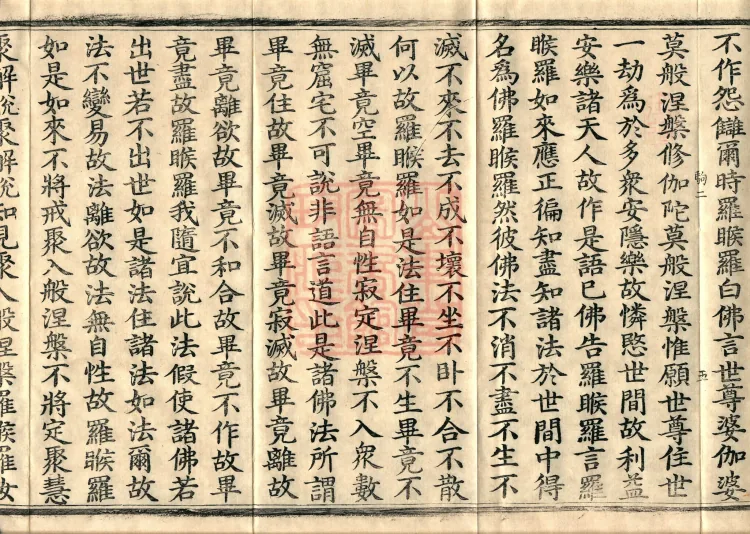 不作怨讎爾時羅睺羅白佛言世尊婆伽婆
莫般涅槃修伽陀莫般涅槃惟願世尊住世
一劫為於多衆安隱樂故憐愍世間故利益
安樂諸天人故作是語已佛告羅睺羅言羅
睺羅如來應正徧知盡知諸法於世間中得
名為佛羅睺羅然彼佛法不消不盡不生不
滅不來不去不成不壞不坐不卧不合不散
何以故羅睺羅如是法住畢竟不生畢竟不
滅畢竟空畢竟無自性寂定涅槃不入衆數
無窟宅不可說非語言道此是諸佛法所謂
畢竟住故畢竟滅故畢竟寂滅故畢竟離故
畢竟離欲故畢竟不和合故畢竟不作故畢
竟盡故羅睺羅我隨宜說此法假使諸佛若
出世若不出世如是諸法住諸法如法爾故
法不變易故法離欲故法無自性故羅睺羅
如是如來不將戒聚入般涅槃不將定聚慧
聚解脫聚解脫知見聚入般涅槃羅睺羅汝
駒二
五